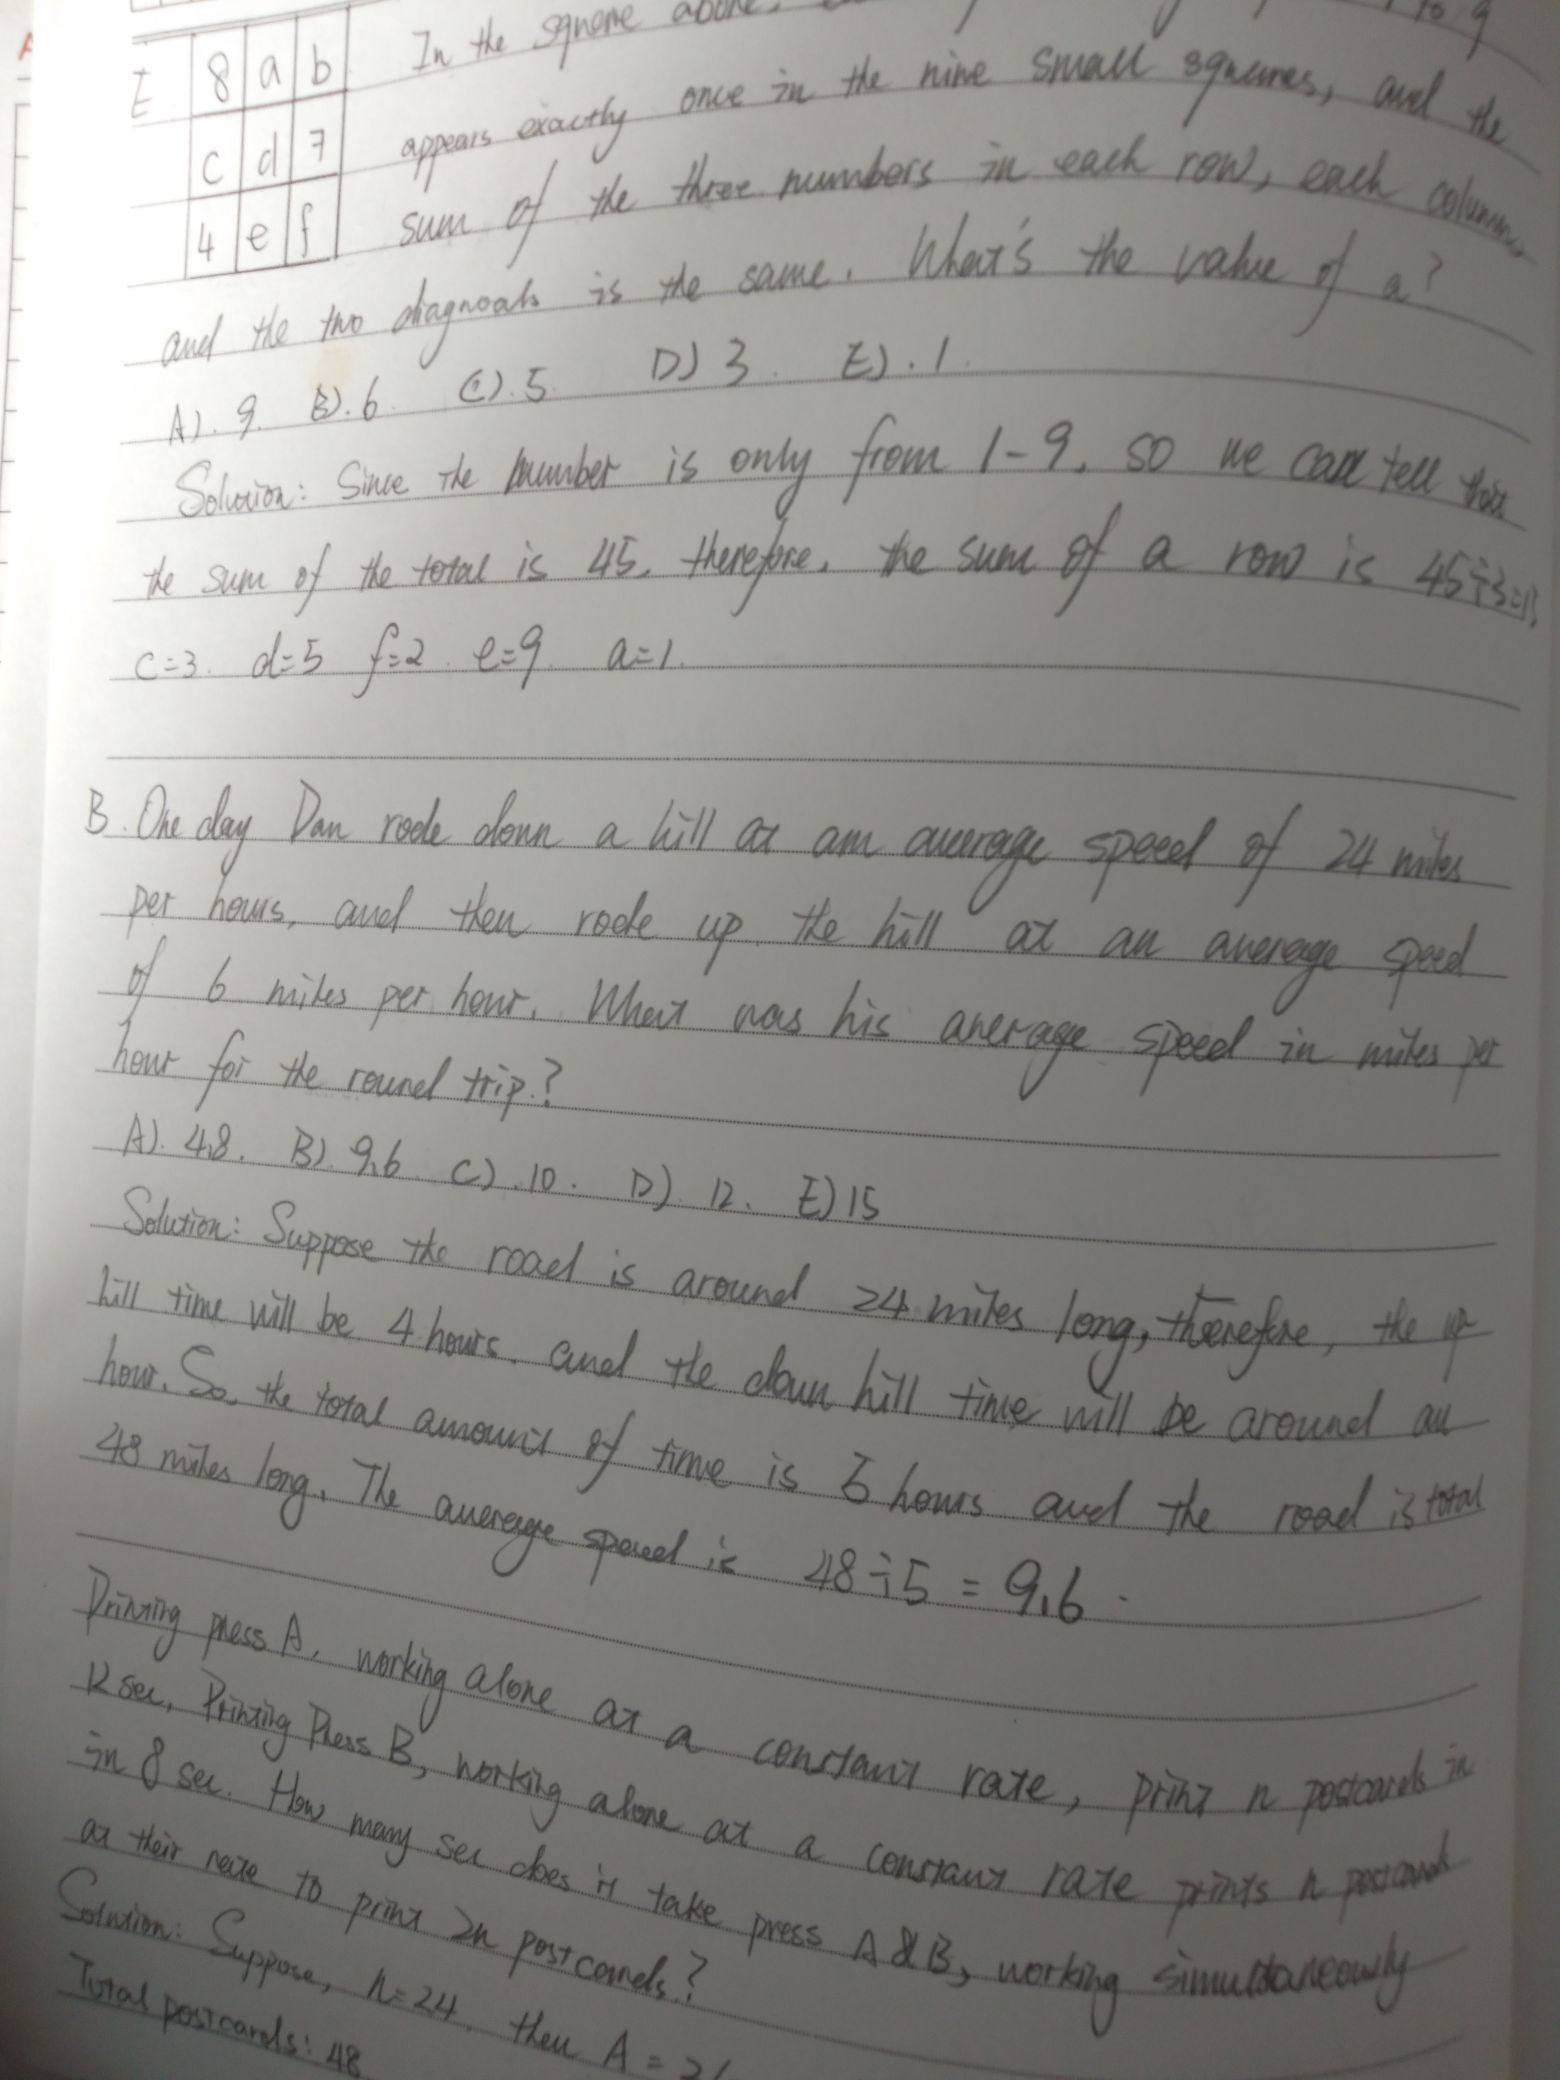 E 8 a b In the square above, to 9
c d 7 appears exactly once in the nine small squares, and the
4 e f sum of the three numbers in each row, each column,
and the two diagnoals is the same. What's the value of a?
A). 9. B). 6. C). 5. D) 3. E). 1.
Solution: Since the number is only from 1-9, so we can tell that
the sum of the total is 45. therefore. the sum of a row is 45÷3=15
c=3. d=5 f=2. e=9. a=1.
B. One day Dan rode down a hill at am average speed of 24 miles
per hours, and then rode up the hill at an average speed
of 6 miles per hour. What was his average speed in miles per
hour for the round trip?
A). 4.8. B). 9.6 C). 10. D). 12. E) 15
Solution: Suppose the road is around 24 miles long, therefore, the up
hill time will be 4 hours. and the down hill time will be around an
hour. So, the total amount of time is 5 hours and the road is total
48 miles long. The average speed is 48÷5 = 9.6.
Printing press A, working alone at a constant rate, print n postcards in
12 sec, Printing Press B, working alone at a constant rate prints n postcards
in 8 sec. How many sec does it take press A & B, working simultaneously
at their rate to print 2n postcards?
Solution: Suppose, n=24. then A =
Total postcards: 48